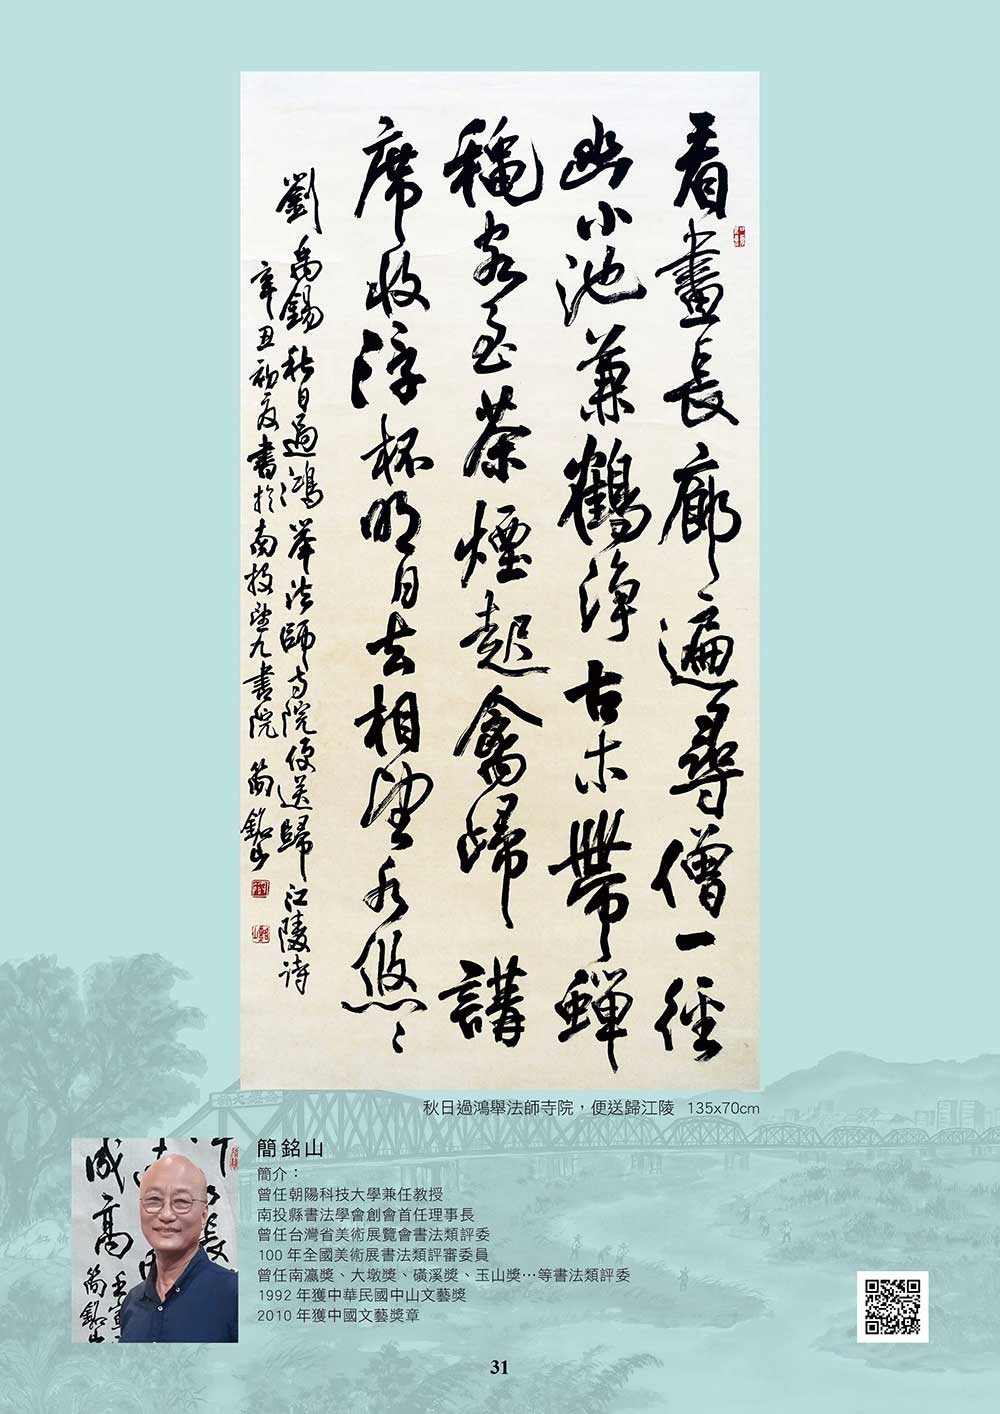 看畫長廊遍尋僧一徑
幽小池兼鶴淨古木帶蟬
穐客至茶煙起禽歸講
席收浮杯明日去相望水悠〻
劉禹錫秋日過鴻舉法師寺院便送歸江陵詩
辛丑初夏書於南投望九書院 簡銘山
秋日過鴻舉法師寺院，便送歸江陵 135x70cm
簡銘山
簡介：
曾任朝陽科技大學兼任教授
南投縣書法學會創會首任理事長
曾任台灣省美術展覽會書法類評委
100 年全國美術展書法類評審委員
曾任南瀛獎、大墩獎、磺溪獎、玉山獎…等書法類評委
1992 年獲中華民國中山文藝獎
2010 年獲中國文藝獎章
長
高
簡銘山
31